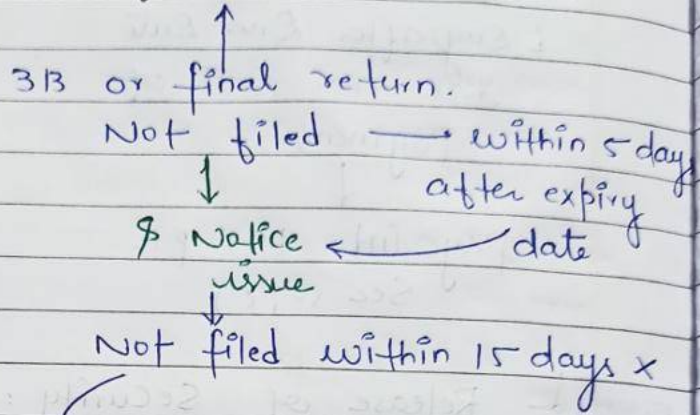 3B or final return.
Not filed → within 5 days
after expiry
$ Notice ← date
issue
Not filed within 15 days ×